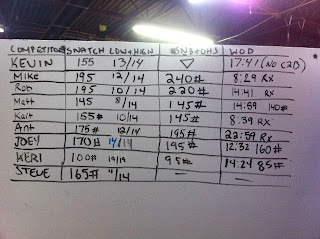 COMPETITOR SNATCH LOW+HIGH #SNB+OHS WOD
KEVIN 155 13/14 17:41 (NO C2B)
Mike 195 12/14 240# 8:29 Rx
Rob 195 10/14 220# 14:41 Rx
Matt 145 8/14 145# 14:59 140#
Kait 155# 10/14 145# 8:39 Rx
Ant 175# 12/14 195# 22:59 Rx
JOEY 170# 14/14 195# 12:32 160#
KERI 100# 14/14 95# 14:24 85#
STEVE 165# 11/14 — —